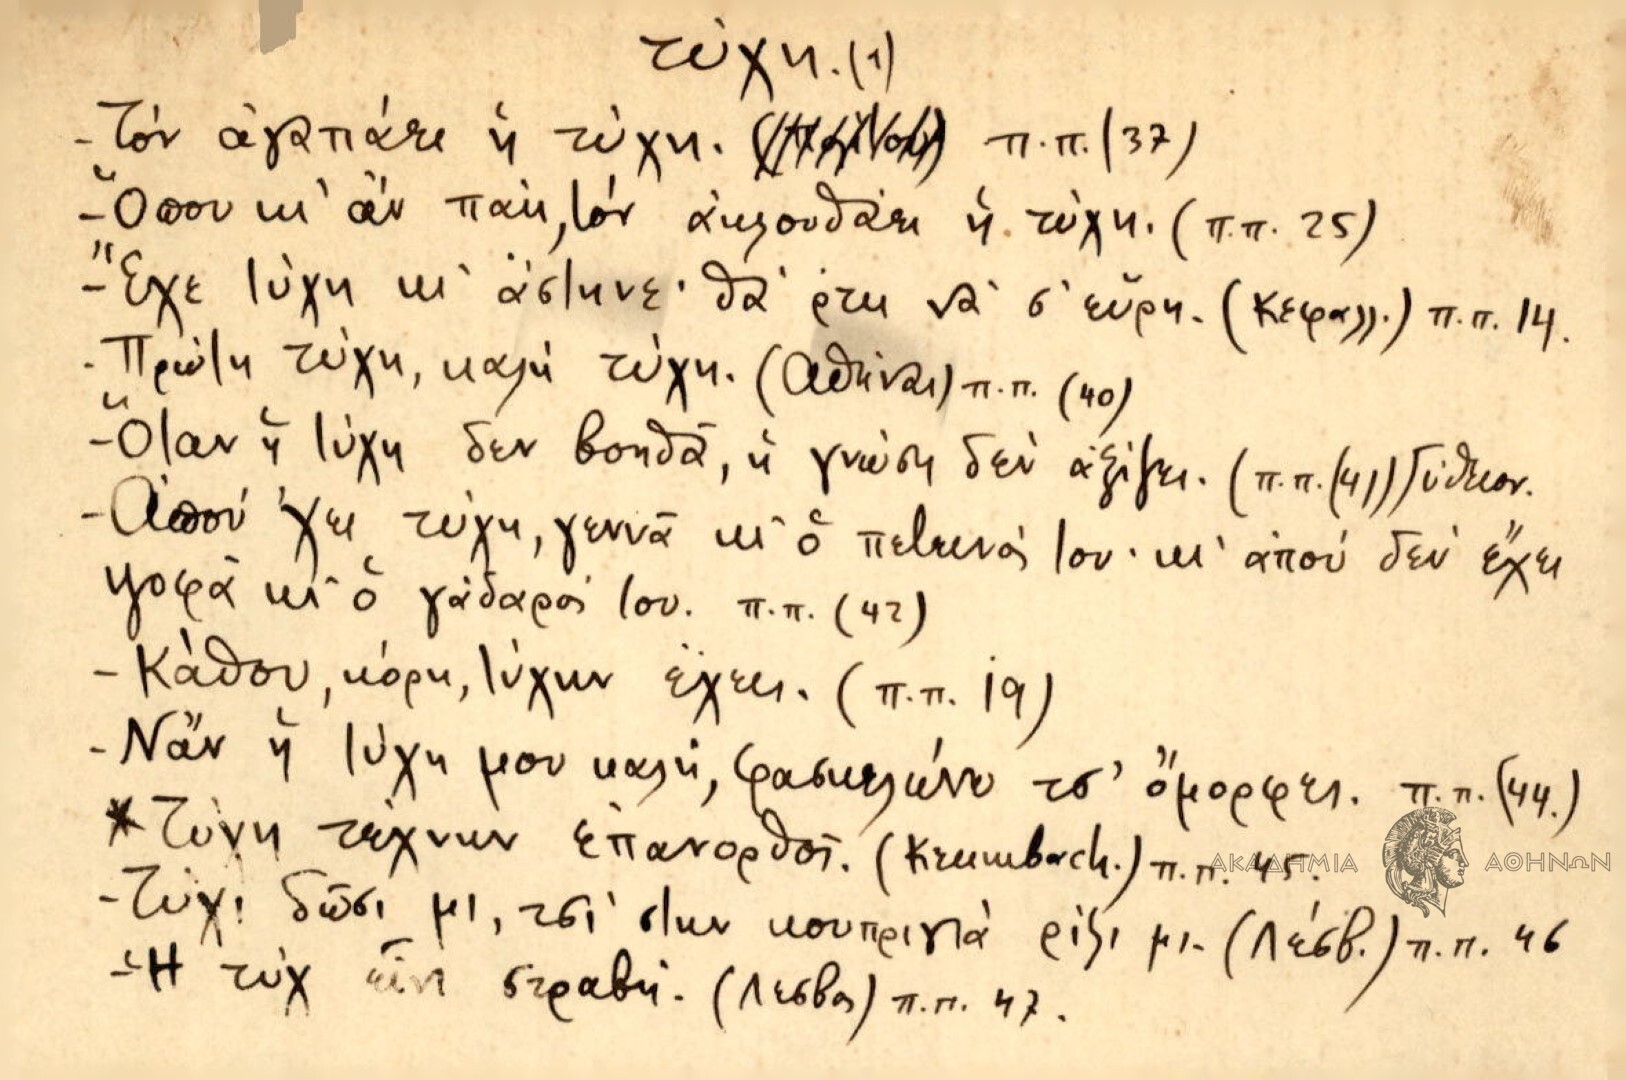 τύχη. (1)
- Τόν ἀγαπάει ἡ τύχη. π.π. (37)
- Ὅπου κι' ἄν πάῃ, τόν ἀκλουθάει ἡ τύχη. (π.π. 25)
- Ἔχε τύχη κι' ἄστηνε· θά ρτῃ νά σ' εὕρῃ. (Κεφαλλ.) π.π. 14.
- Πρώτη τύχη, καλή τύχη. (Ἀθῆναι) π.π. (40)
- Ὅταν ἡ τύχη δεν βοηθᾶ, ἡ γνώση δέν ἀξίζει. (π.π. (41)) Γύθειον.
- Ἀπού 'χει τύχη, γεννᾶ κι ὁ πετεινός του· κι' ἀπού δέν ἔχει
ψοφᾶ κι ὁ γάδαρός του. π.π. (42)
- Κάθου, κόρη, τύχην ἔχεις. (π.π. 19)
- Νἄν ἡ τύχη μου καλή, φασκελώνω τσ' ὄμορφες. π.π. (44.)
* Τύχη τέχνην ἐπανορθοῖ. (Krumbach.) π.π. 45.
- Τύχι δῶσι μι, τσί στην κουπριγιά ρίξι μι. (Λέσβ.) π.π. 46
- Ἡ τύχ εἶνι στραβή. (Λέσβος) π.π. 47.
ΑΚΑΔΗΜΙΑ ΑΘΗΝΩΝ